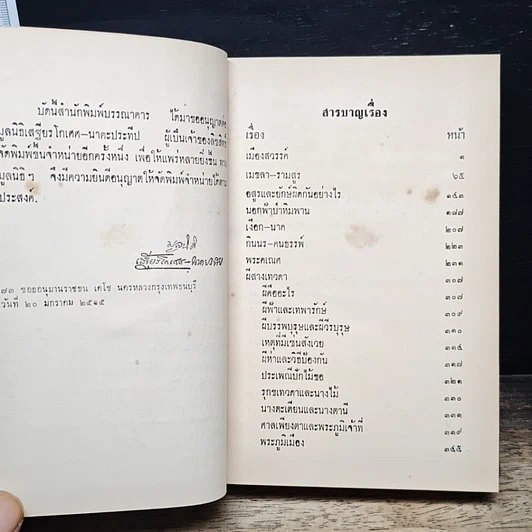 บัดนี้สำนักพิมพ์บรรณาคาร ได้มาขออนุญาตต่อ
มูลนิธิเสฐียรโกเศศ-นาคะประทีป ผู้เป็นเจ้าของลิขสิทธิ์
จัดพิมพ์ขึ้นจำหน่ายอีกครั้งหนึ่ง เพื่อให้แพร่หลายยิ่งขึ้น
มูลนิธิฯ จึงมีความยินดีอนุญาตให้จัดพิมพ์จำหน่ายได้ตาม
ประสงค์.
มูลนิธิ
เสฐียรโกเศศ-นาคะประทีป
๗๓ ซอยอนุมานราชธน เดโช นครหลวงกรุงเทพธนบุรี
วันที่ ๒๐ มกราคม ๒๕๑๕
สารบาญเรื่อง
เรื่อง หน้า
เมืองสวรรค์ ๑
เมขลา-รามสูร ๖๕
อสูรและยักษ์ผิดกันอย่างไร ๑๔๓
นอกฟ้าป่าหิมพาน ๑๘๗
เงือก-นาค ๒๐๗
กินนร-คนธรรพ์
พระคเณศ
ผีสางเทวดา
ผีคืออะไร
ผีฟ้าและเทพารักษ์
ผีบรรพบุรุษและผีวีรบุรุษ ๓๑๐
เหตุที่มีเซ่นสังเวย ๓๑๔
ผีห่าและวิธีป้องกัน ๓๑๗
ประเพณีปักไม้ขอ ๓๒๑
รุกขเทวดาและนางไม้
นางตะเคียนและนางตานี ๓๓๑
ศาลเพียงตาและพระภูมิเจ้าที่ ๓๓๙
พระภูมิเมือง ๓๔๕